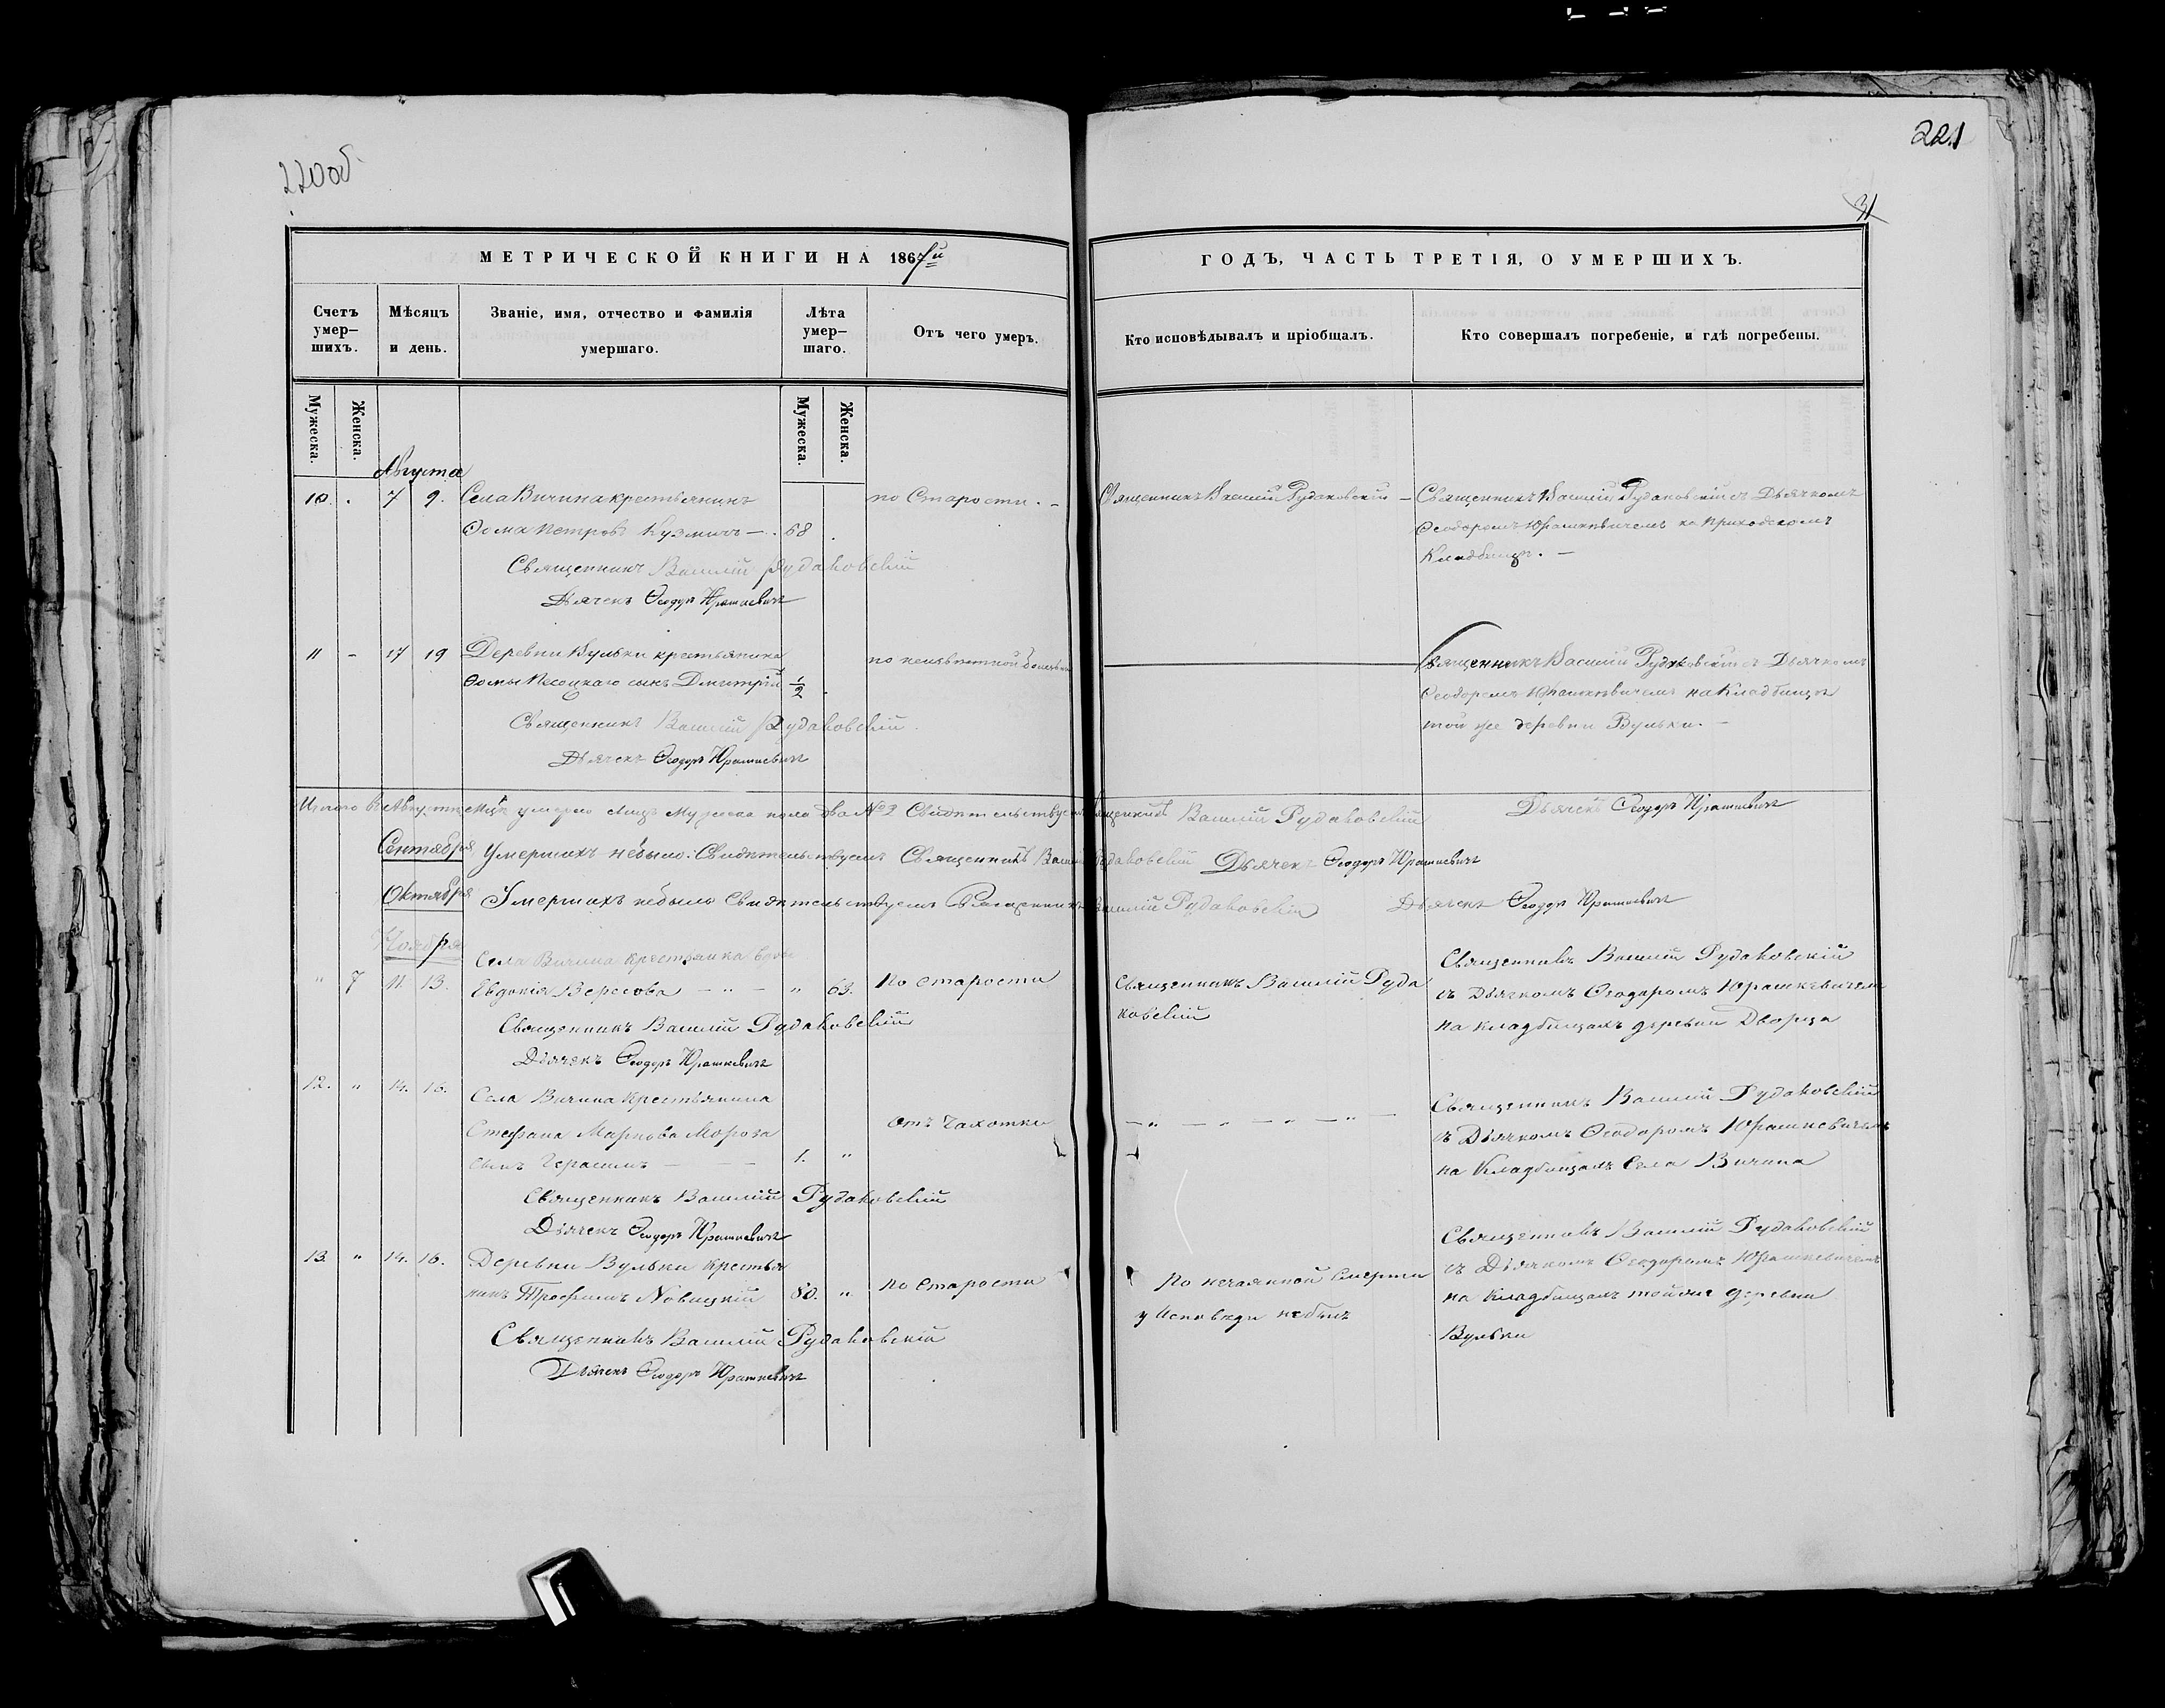 220об
221
31
МЕТРИЧЕСКОЙ КНИГИ НА 1867й
ГОДЪ, ЧАСТЬ ТРЕТІЯ, О УМЕРШИХЪ.
Счетъ умер–шихъ.
Мѣсяцъ и день.
Званіе, имя, отчество и фамилія умершаго.
Лѣта умер–шаго.
Отъ чего умеръ.
Кто исповѣдывалъ и пріобщалъ.
Кто совершалъ погребеніе, и гдѣ погребены.
Мужеска.
Женска.
Мужеска.
Женска.
Августа
10. 7 9. Села Вичина крестьянинъ по Старости. – Священникъ Василій Рудаковскій – Священникъ Василій Рудаковскій съ Дьячкомъ
Ѳома Петровъ Кузмичъ – . 68 Ѳеодоромъ Юрашкевичемъ на приходскомъ
Священникъ Василій Рудаковскій Кладбищѣ. –
Дьячекъ Ѳеодоръ Юрашкевичъ
11 – 17 19 Деревни Вульки крестьянина по неизвѣстной болезни Священникъ Василій Рудаковскій съ Дьячкомъ
Ѳомы Песоцкаго сынъ Дмитрій 1/2 Ѳеодоромъ Юрашкевичемъ на Кладбищѣ
Священникъ Василій Рудаковскій той же деревни Вульки. –
Дьячекъ Ѳеодоръ Юрашкевичъ
Итого въ Августѣ Мцѣ умерло лицъ Мужеска пола два № 2 Свидѣтельствуемъ Священникъ Василій Рудаковскій Дьячекъ Ѳеодоръ Юрашкевичъ
Сентября Умершихъ небыло. Свидѣтельствуемъ Священникъ Василій Рудаковскій Дьячекъ Ѳеодоръ Юрашкевичъ
Октября Умершихъ небыло Свидѣтельствуемъ Священникъ Василій Рудаковскій Дьячекъ Ѳеодоръ Юрашкевичъ
Ноября
Села Вичина Крестьянка вдова Священникъ Василій Рудаковскій
" 7 11. 13. Евдокія Вересова – " – " 63. По Старости Священникъ Василій Руда съ Дьячкомъ Ѳеодоромъ Юрашкевичем
Священникъ Василій Рудаковскій ковскій на кладбищахъ деревни Дворца
Дьячекъ Ѳеодоръ Юрашкевичъ
12. " 14. 16. Села Вичина Крестьянина Священникъ Василій Рудаковскій
Стефана Маркова Мороза Отъ Чахотки – " – " – " – " – съ Дьячкомъ Ѳеодоромъ Юрашкевичемъ
сынъ Герасимъ – – – 1. " на Кладбищахъ Села Вичина
Священникъ Василій Рудаковскій
Дьячекъ Ѳеодоръ Юрашкевичъ Священникъ Василій Рудаковскій
13. " 14. 16. Деревни Вульки Крестья съ Дьячкомъ Ѳеодоромъ Юрашкевичемъ
нинъ Трофимъ Новицкій 80. " По Старости По нечаянной смерти на Кладбищахъ тойже деревни
у исповѣди небылъ Вульки
Священникъ Василій Рудаковскій
Дьячекъ Ѳеодоръ Юрашкевичъ